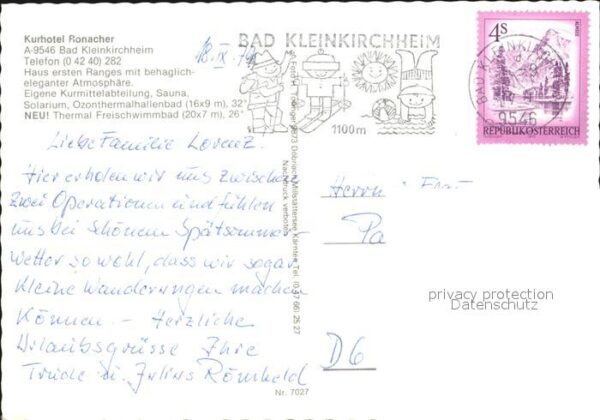 Kurhotel Ronacher
A-9546 Bad Kleinkirchheim
Telefon (0 42 40) 282
Haus ersten Ranges mit behaglich-
eleganter Atmosphäre.
Eigene Kurmittelabteilung, Sauna,
Solarium, Ozonthermalhallenbad (16x9 m), 32°
NEU! Thermal Freischwimmbad (20x7 m), 26°
18. IX.
BAD KLEINKIRCHHEIM
1100 m
4S
REPUBLIK ÖSTERREICH
9546
Liebe Familie Lorenz.
Hier erholen wir uns zwischen
zwei Operationen und fühlen
uns bei schönem Spätsommer-
wetter so wohl, dass wir sogar
kleine Wanderungen machen
können. – Herzliche
Urlaubsgrüsse Ihre
Trude u. Julius Römheld
Nachdruck verboten
Herrn - Frau
Pa
D6
privacy protection
Datenschutz
Nr. 7027